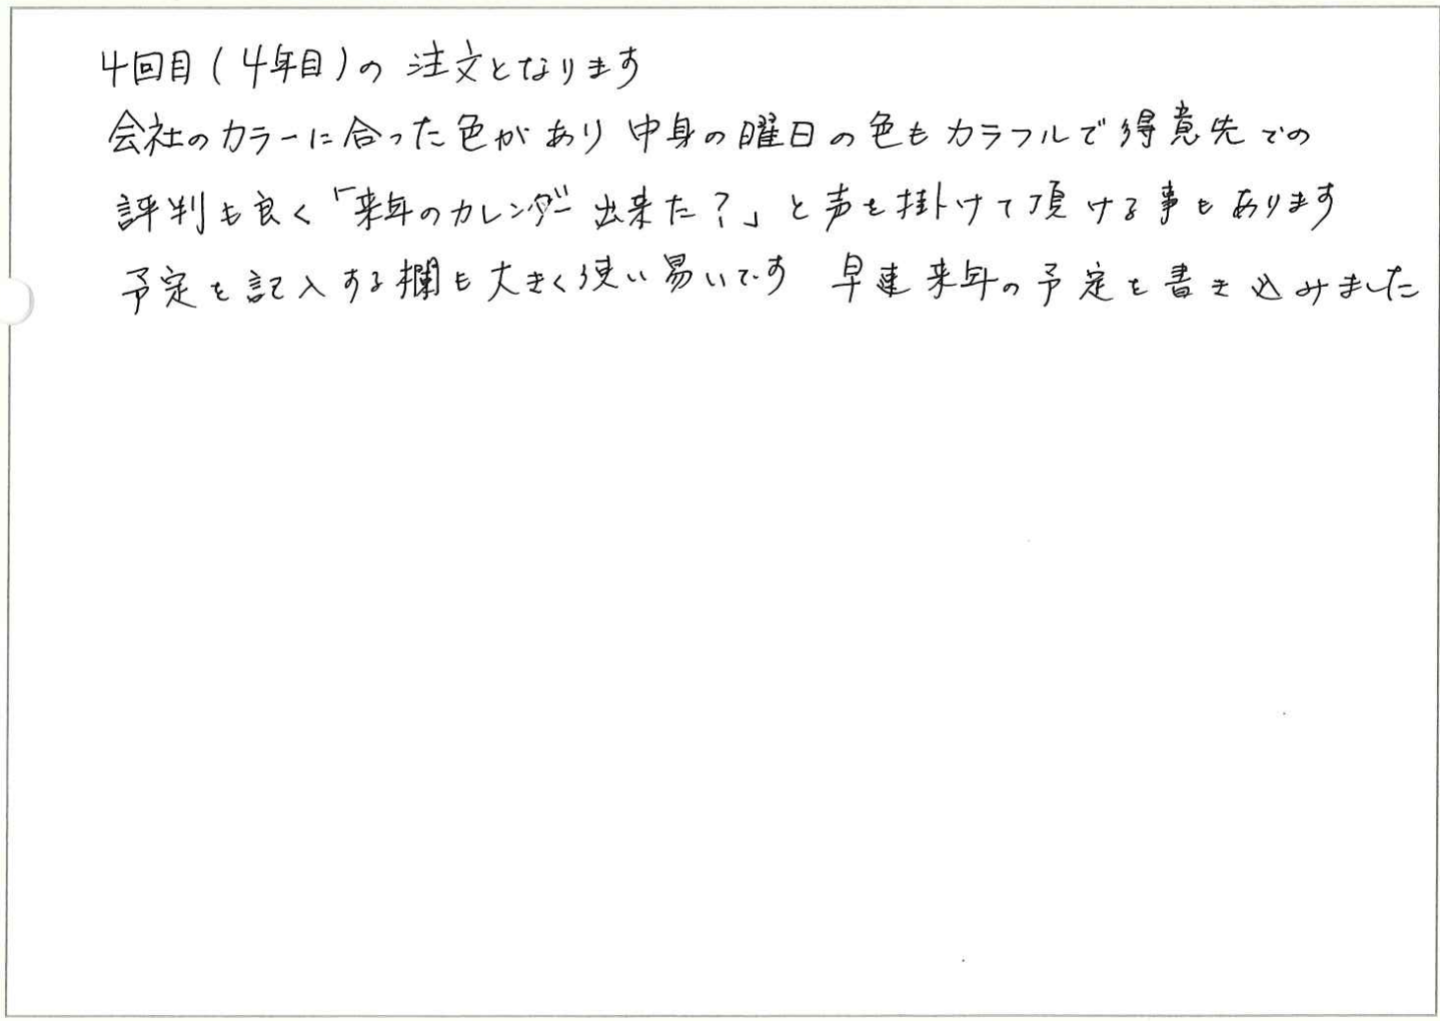 4回目(4年目)の注文となります
会社のカラーに合った色があり中身の曜日の色もカラフルで得意先での
評判も良く「来年のカレンダー出来た?」と声を掛けて頂ける事もあります
予定を記入する欄も大きく使い易いです 早速来年の予定を書き込みました